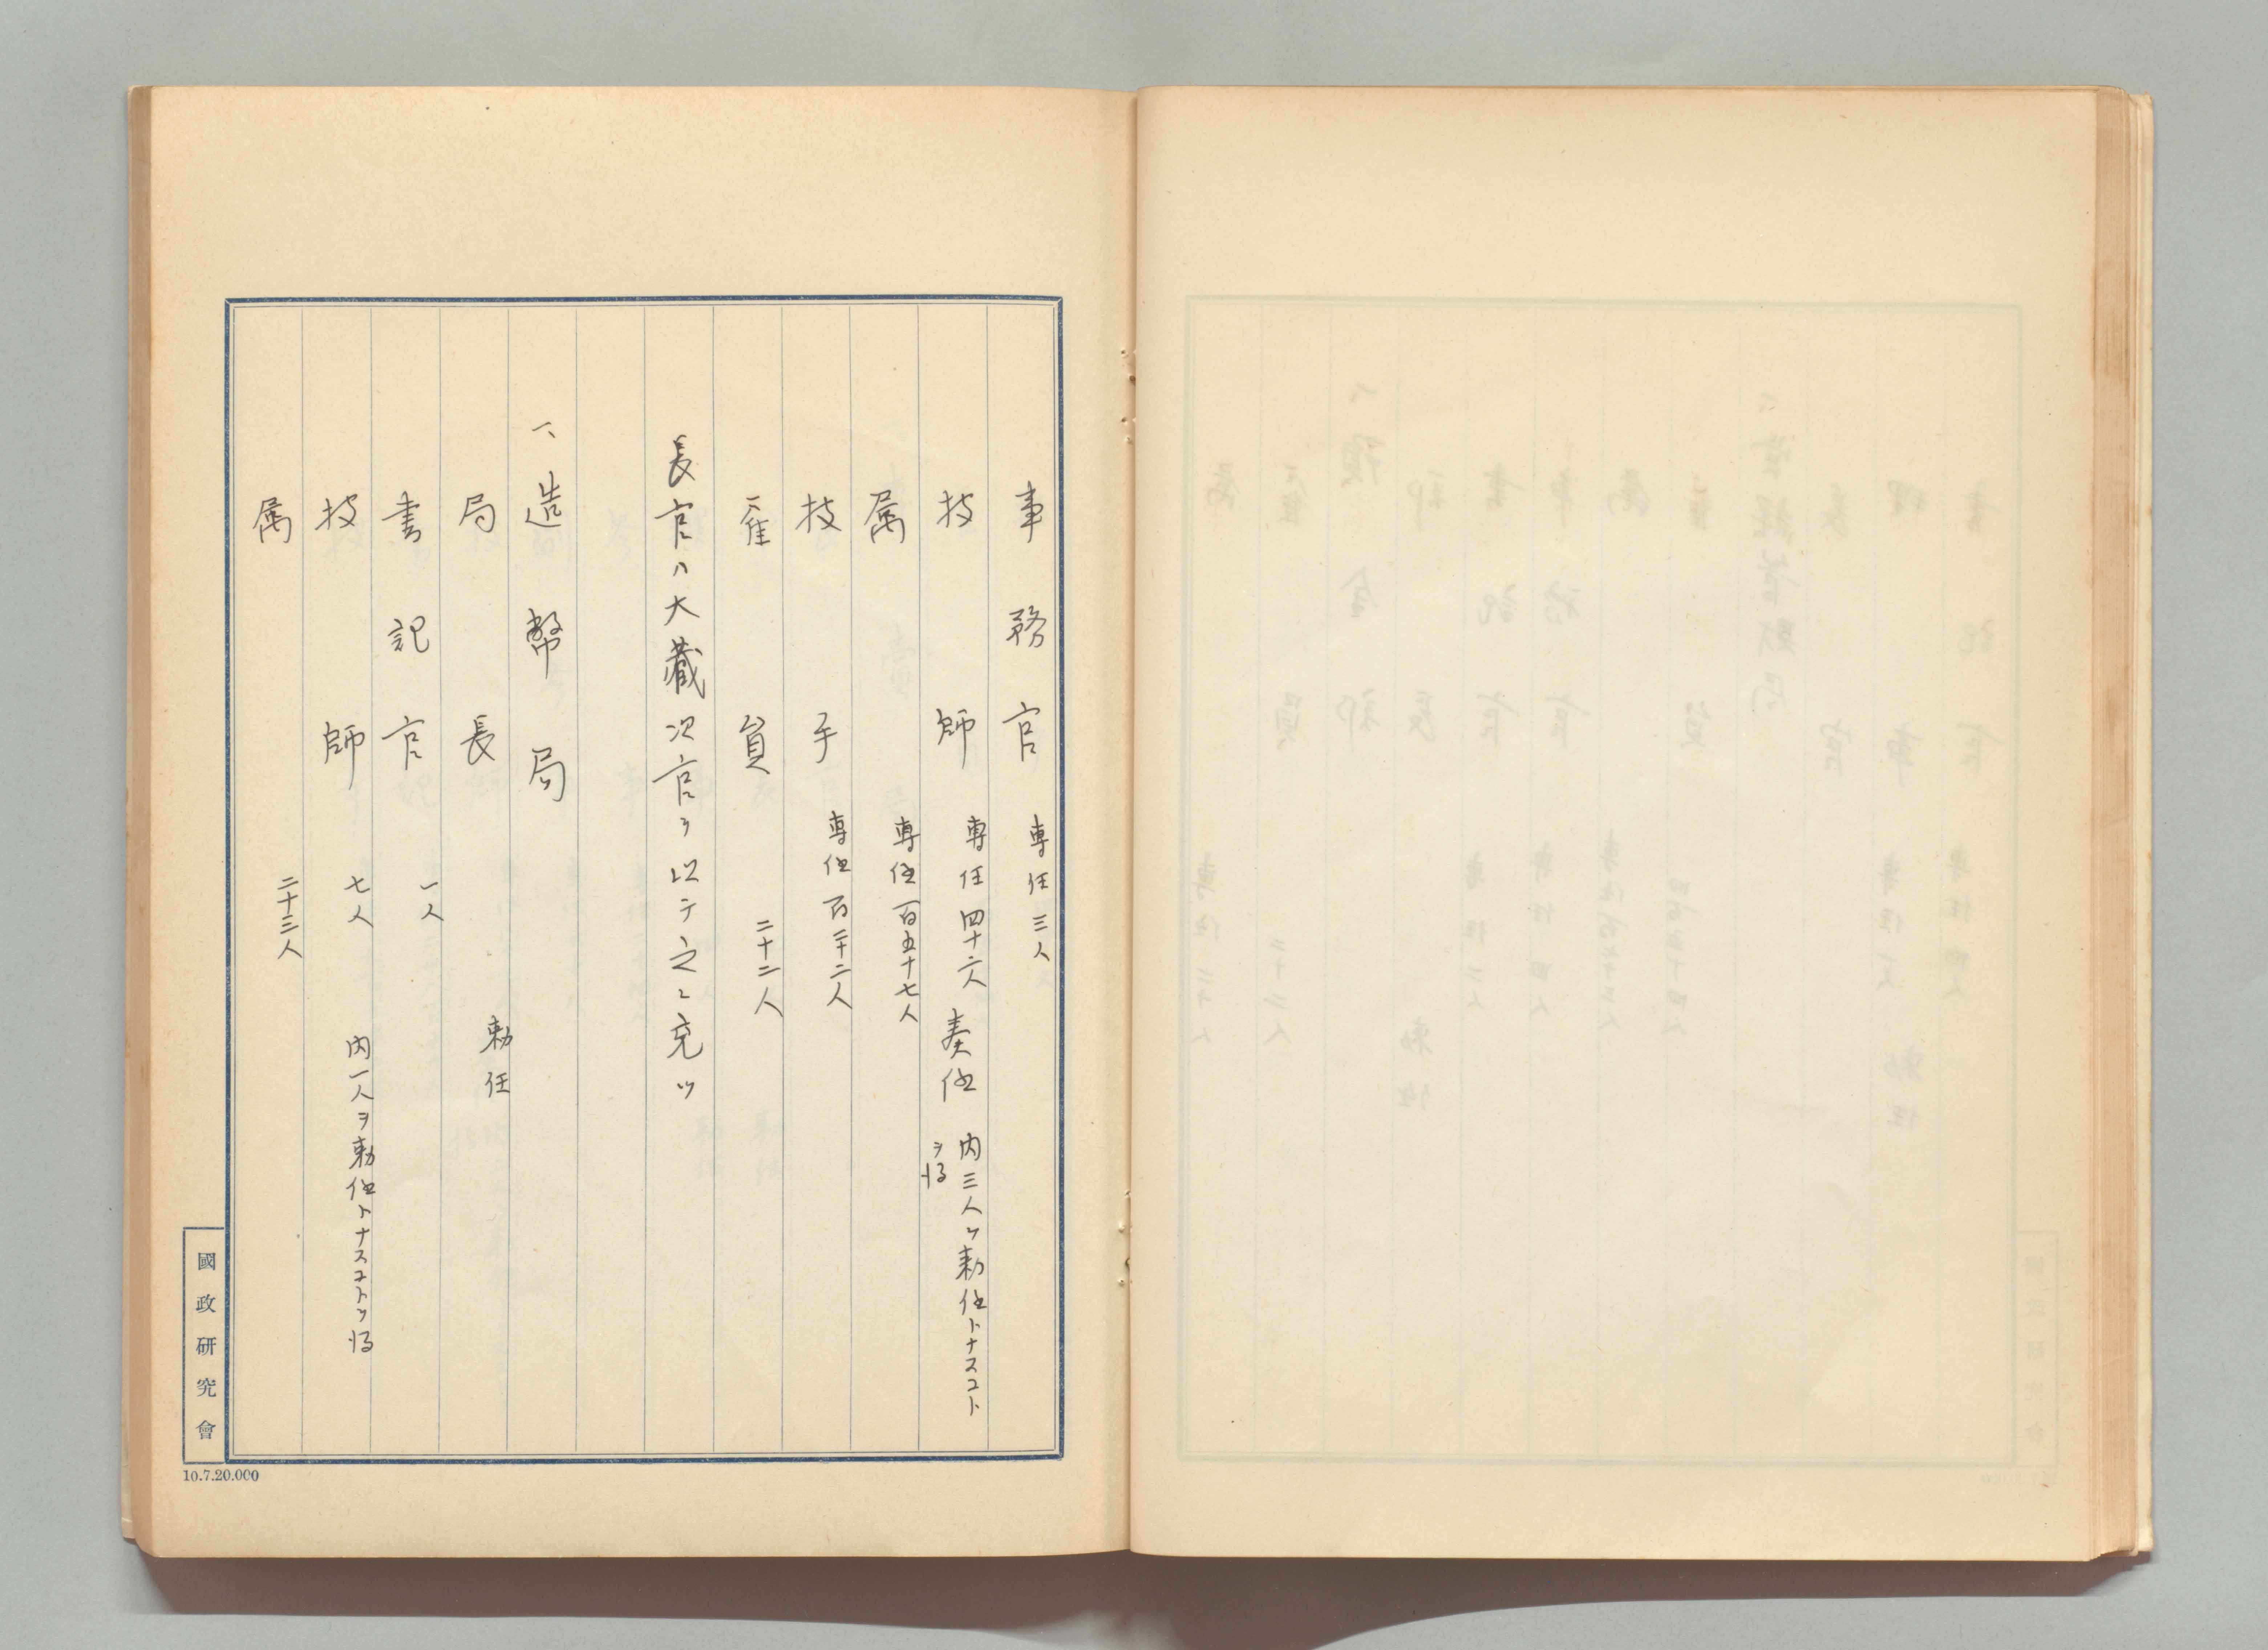 事務官 専任三人
技師 専任四十六人 奏任 内三人ヲ勅任トナスコト
ヲ得
属 専任百五十七人
技手 専任百二十二人
雇員 二十二人
長官ハ大藏次官ヲ以テ之ニ充ツ
一、造幣局
局長 勅任
書記官 一人
技師 七人 内一人ヲ勅任トナスコトヲ得
属 二十三人
國政研究會
10.7.20.000